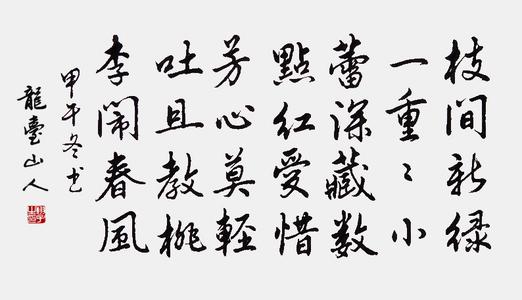 枝间新绿
一重〻小
蕾深藏数
點红愛惜
芳心莫輕
吐且教桃
李闹春風
甲午冬书
龍臺山人